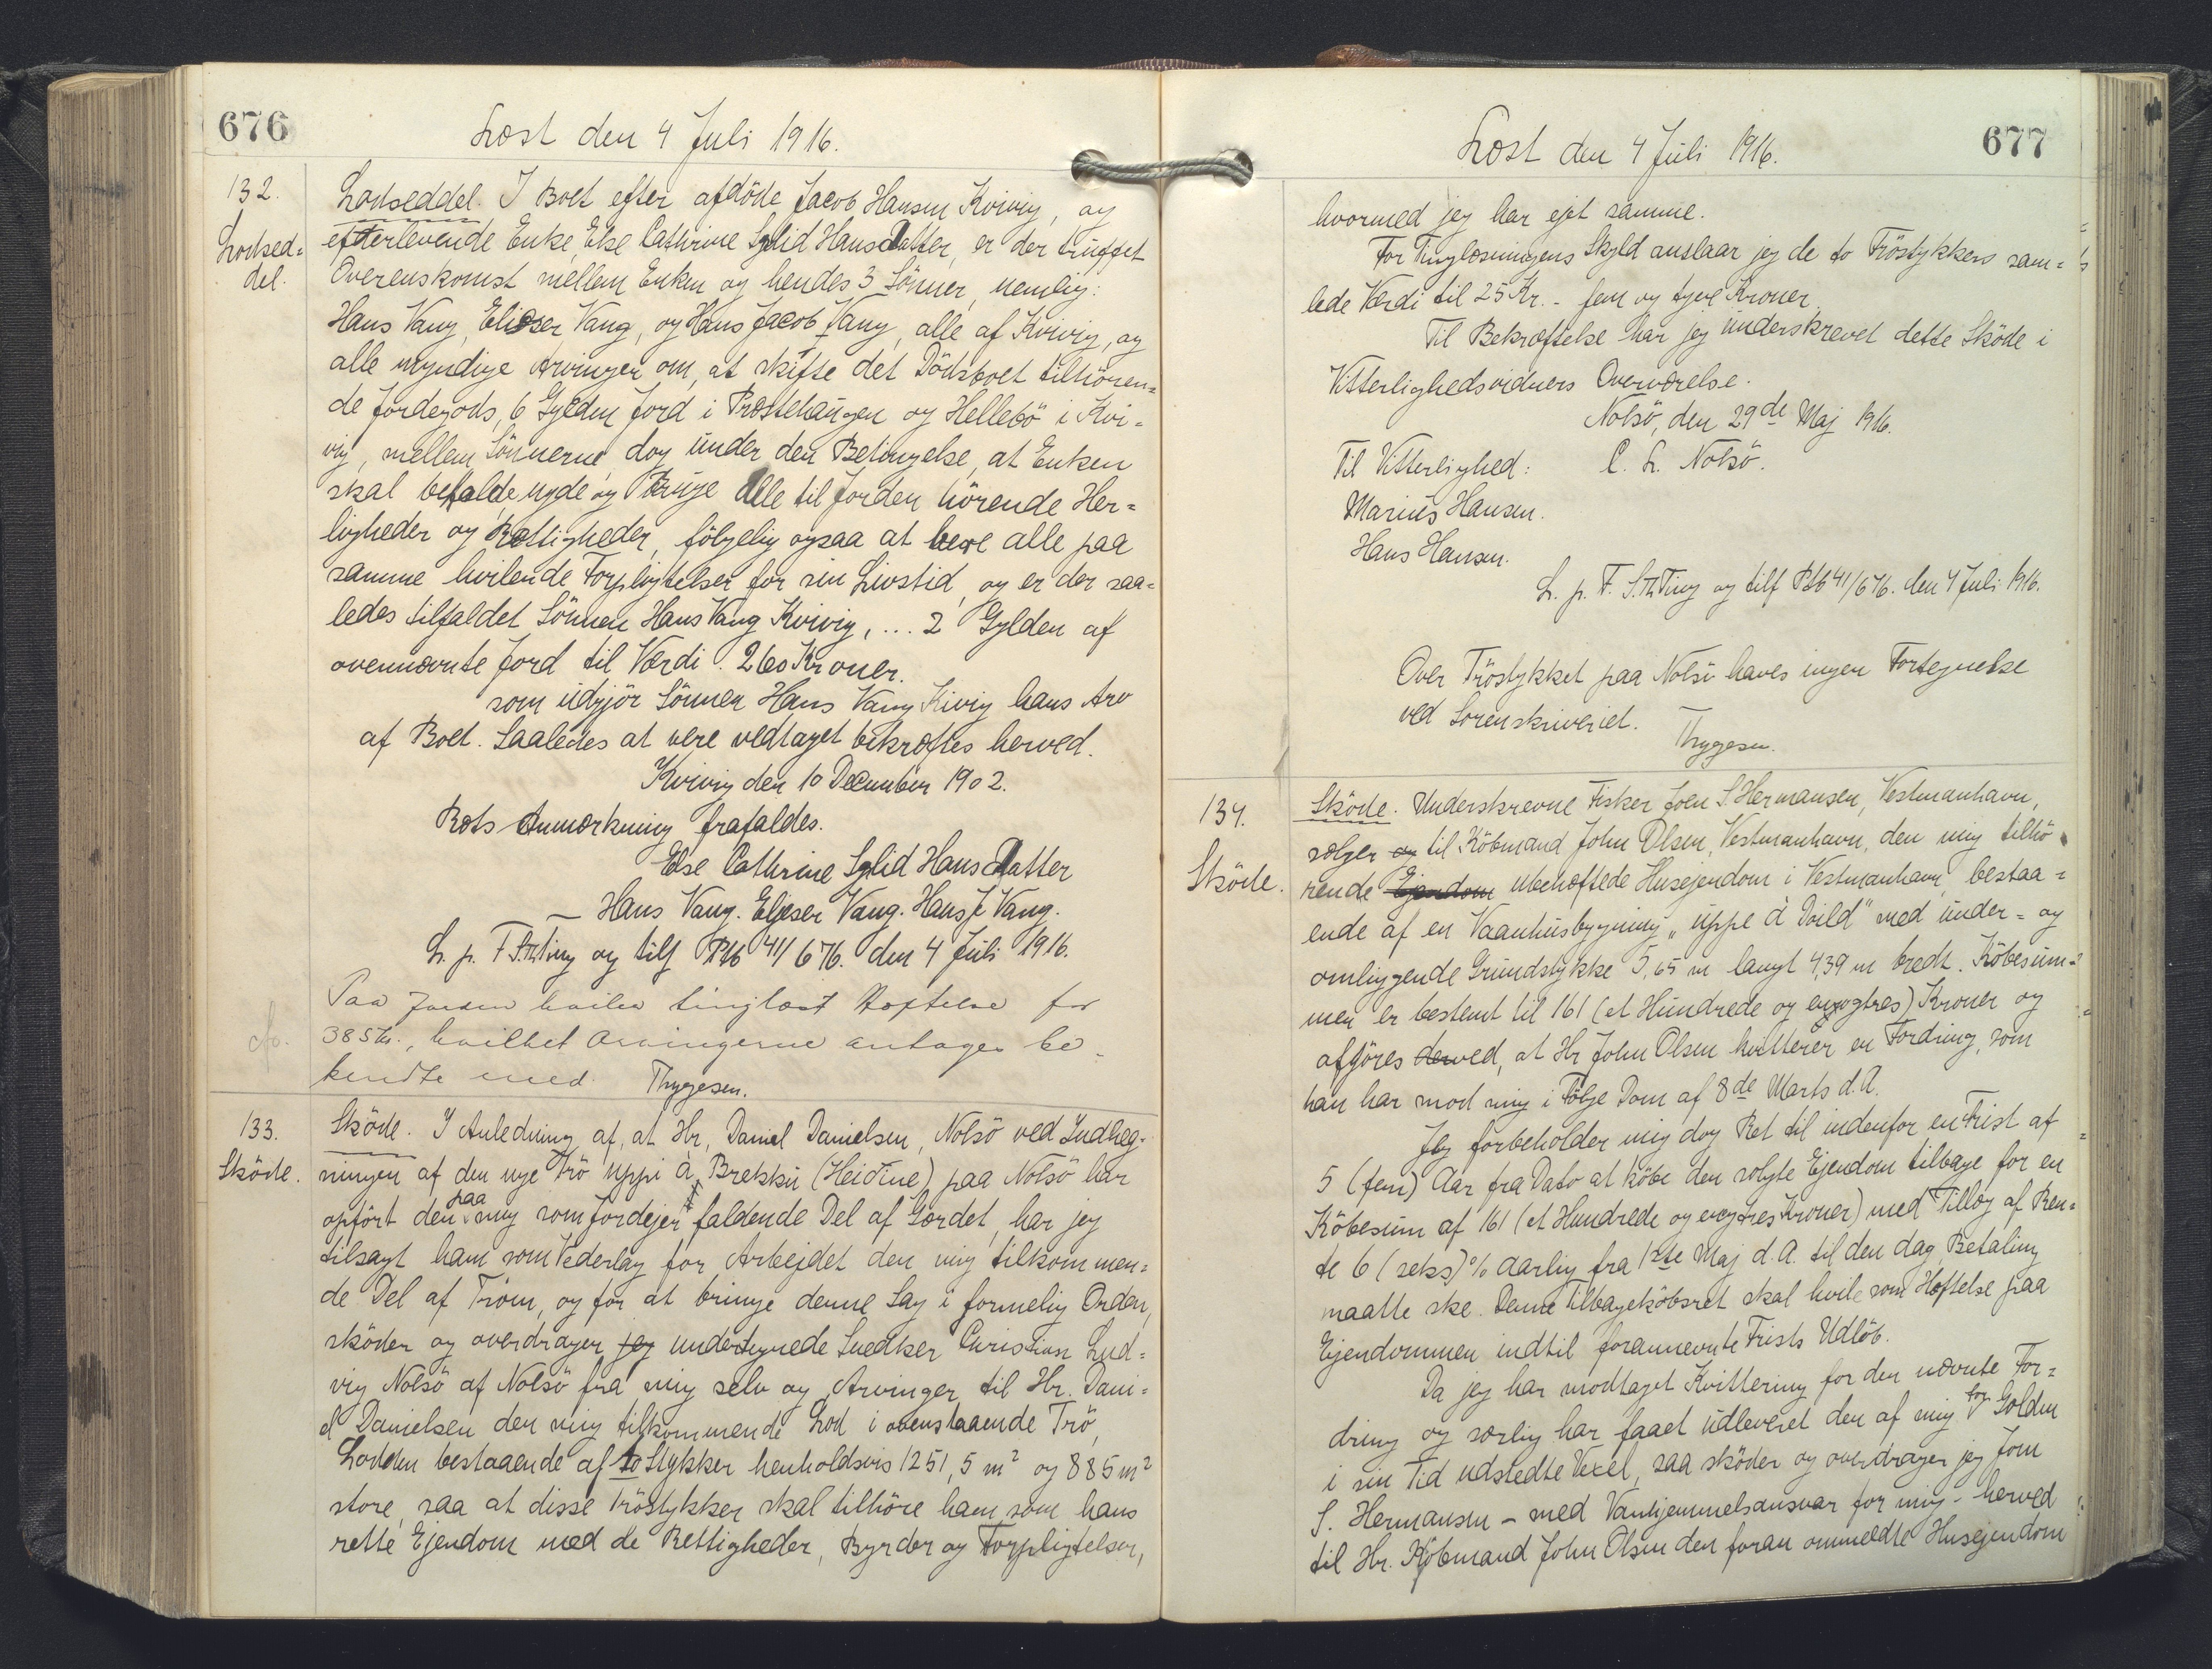 676
Læst den 4 Juli 1916.
132.
Lodsed=
del.
Lodseddel. I Boet efter afdöde Jacob Hansen Kvivig, og
efterlevende Enke, Else Cathrine Sylid Hansdatter, er der truffet
Overenskomst mellem Enken og hendes 3 Sönner, nemlig:
Hans Vang, Elieser Vang, og Hans Jacob Vang, alle af Kvivig, og
alle myndige Arvinger om, at skifte det Dödsboet tilhören=
de Jordegods, 6 Gylden Jord i Præstehaugen og Hellebö i Kvi=
vig, mellem Sönnerne, dog under den Betingelse, at Enken
skal beholde, nyde og bruge alle til Jorden hörende Her=
ligheder og Rettigheder, fölgelig ogsaa at bere alle paa
samme hvilende Forpligtelser for sin Livstid, og er der saa=
ledes tilfaldet Sönnen Hans Vang Kvivig, ... 2 Gylden af
ovennævnte Jord til Værdi. 260 Kroner.
som udgjör Sönnen Hans Vang Kivig hans Arv
af Boet. Saaledes at vere vedtaget bekræftes herved.
Kvivig den 10 December 1902.
Rets Anmærkning frafaldes.
Else Cathrine Sylid Hans Datter
Hans Vang. Eljeser Vang. Hans J Vang.
L. p. F. S. Th. Ting og tilf Ptb 41/676. den 4 Juli 1916.
Paa Jorden hviler tinglæst Hæftelse for
385 Kr., hvilket Arvingerne antages be-
kendte med. Thygesen.
133.
Sköde.
Sköde. I Anledning af, at Hr. Daniel Danielsen, Nolsö ved Indheg-
ningen af den nye Trö uppi á Brekku (Heidine) paa Nolsö har
opfört den paa mig som Jordejer faldende Del af Gærdet, har jeg
tilsagt ham som Vederlag for Arbejdet den mig tilkommen=
de Del af Tröen, og for at bringe denne Sag i formelig Orden,
sköder og overdrager jeg undertegnede Snedker Christian Lud=
vig Nolsö af Nolsö fra mig selv og Arvinger til Hr. Dani=
el Danielsen den mig tilkommende Lod i ovenstaaende Trö,
Lodden bestaaende af to Stykker henholdsvis 1251,5 m² og 885 m²
store, saa at disse Tröstykker skal tilhöre ham som hans
rette Ejendom med de Rettigheder, Byrder og Forpligtelser,
677
Læst den 4 Juli 1916.
hvormed jeg har ejet samme.
For Tinglæsningens Skyld anslaar jeg de to Tröstykkers sam=
lede Værdi til 25 Kr. - fem og tyve Kroner.
Til Bekræftelse har jeg underskrevet dette Sköde i
Vitterlighedsvidners Overværelse.
Nolsö, den 29de Maj 1916.
Til Vitterlighed: C. L. Nolsö.
Marius Hansen.
Hans Hansen.
L. p. F. S. Th. Ting og tilf Ptb 41/676. den 4 Juli 1916.
Over Tröstykket paa Nolsö haves ingen Fortegnelse
ved Sorenskriveriet.
Thygesen.
134.
Sköde.
Sköde. Underskrevne Fisker Joen S. Hermansen, Vestmanhavn,
sælger og til Köbmand John Olsen, Vestmanhavn, den mig tilhö
rende Ejendom ubehæftede Husejendom i Vestmanhavn, bestaa=
ende af en Vaanhusbygning "uppe á Doild" med under= og
omliggende Grundstykke 5,65 m langt 4,39 m bredt. Köbesum=
men er bestemt til 161 (et Hundrede og enogtres) Kroner og
afgöres derved, at Hr John Olsen kvitterer en Fordring, som
han har mod mig i Fölge Dom af 8de Marts d. A.
Jeg forbeholder mig dog Ret til indenfor en Frist af
5 (fem) Aar fra Dato at köbe den solgte Ejendom tilbage for en
Köbesum af 161 (et Hundrede og enogtres Kroner) med Tillæg af Ren=
te 6 (seks) % aarlig fra 1ste Maj d. A. til den dag, Betaling
maatte ske. Denne Tilbageköbsret skal hvile som Hæftelse paa
Ejendommen indtil forannevnte Frists Udlöb.
Da jeg har modtaget Kvittering for den nævnte For=
dring og særlig har faaet udleveret den af mig for Gælden
i sin Tid udstedte Vexel, saa sköder og overdrager jeg Joen
S. Hermansen - med Vanhjemmelsansvar for mig - herved
til Hr. Köbmand John Olsen den foran ommeldte Husejendom